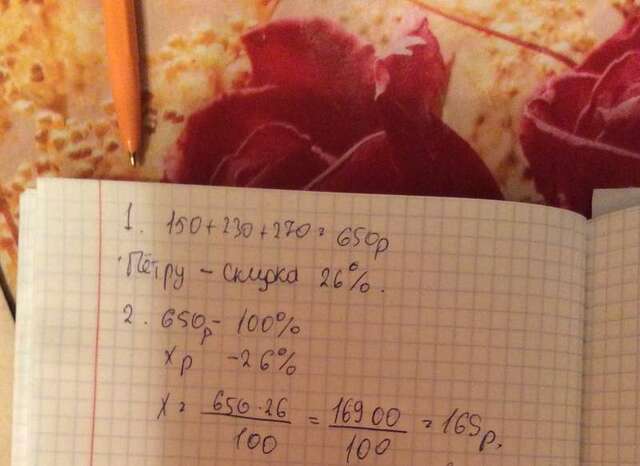 1. 150+230+270=650р
Пётру – скидка 26%.
2. 650р – 100%
х р – 26%
х = 650·26/100 = 16900/100 = 169р.